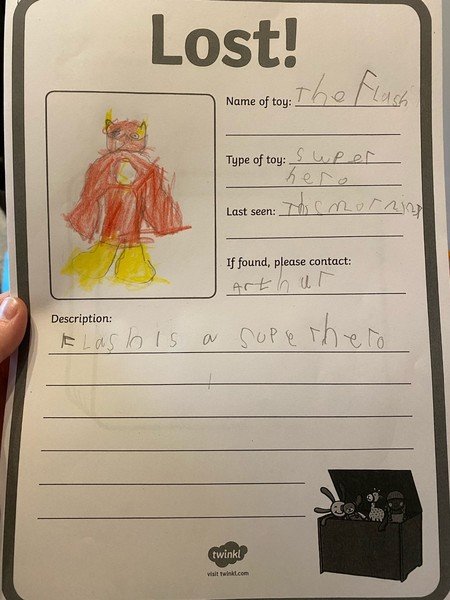 Lost!
Name of toy: The Flash
Type of toy: super
hero
Last seen: This morning
If found, please contact:
Arthur
Description:
Flash is a superhero
twinkl
visit twinkl.com